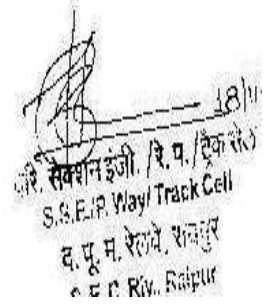 18/11
वरि. सेक्शन इंजी. /रे. प. /ट्रैक सेल
S.S.E./P. Way/ Track Cell
द. पू. म. रेलवे, रायपुर
S. E. C. Rly., Raipur